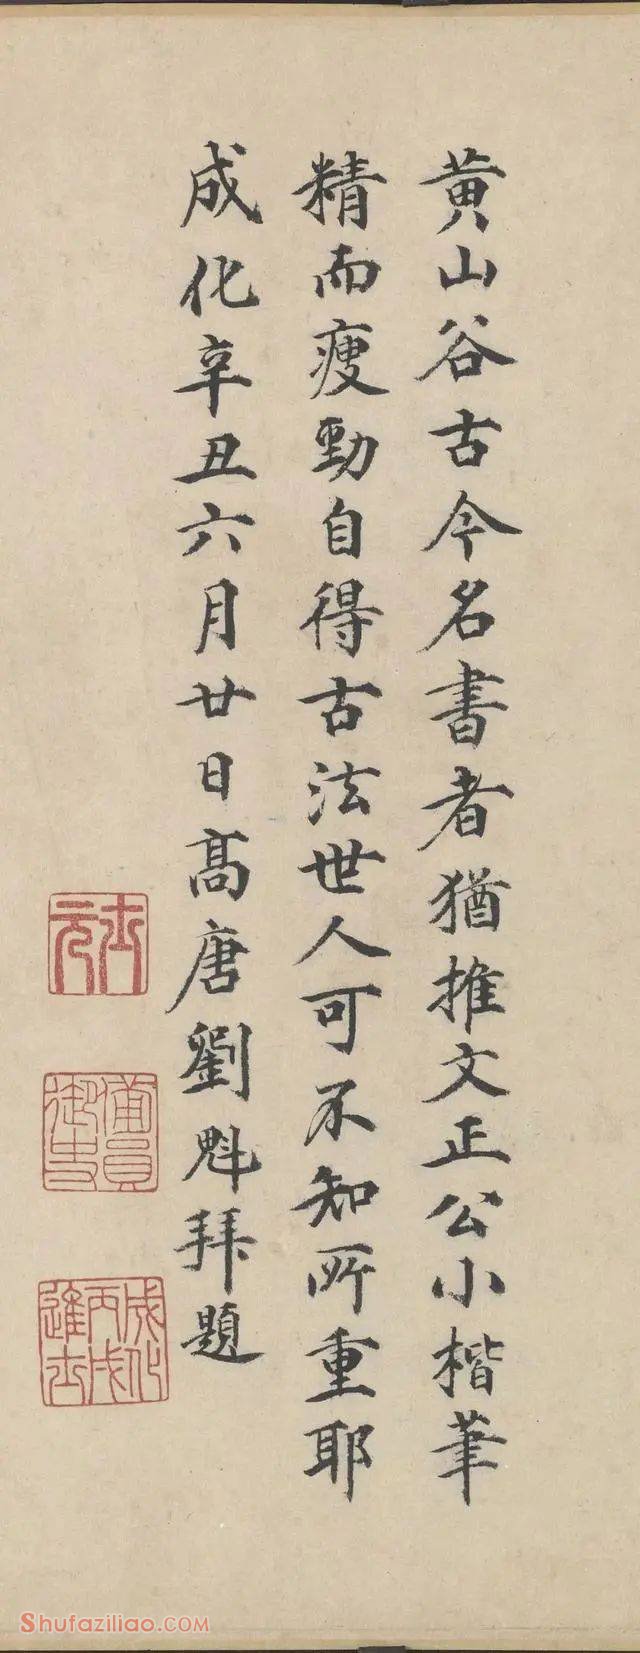 黄山谷古今名書者猶推文正公小楷筆
精而瘦勁自得古法世人可不知所重耶
成化辛丑六月廿日高唐劉魁拜題
士元
備員御史
成化丙戌進士
Shufaziliao.COM